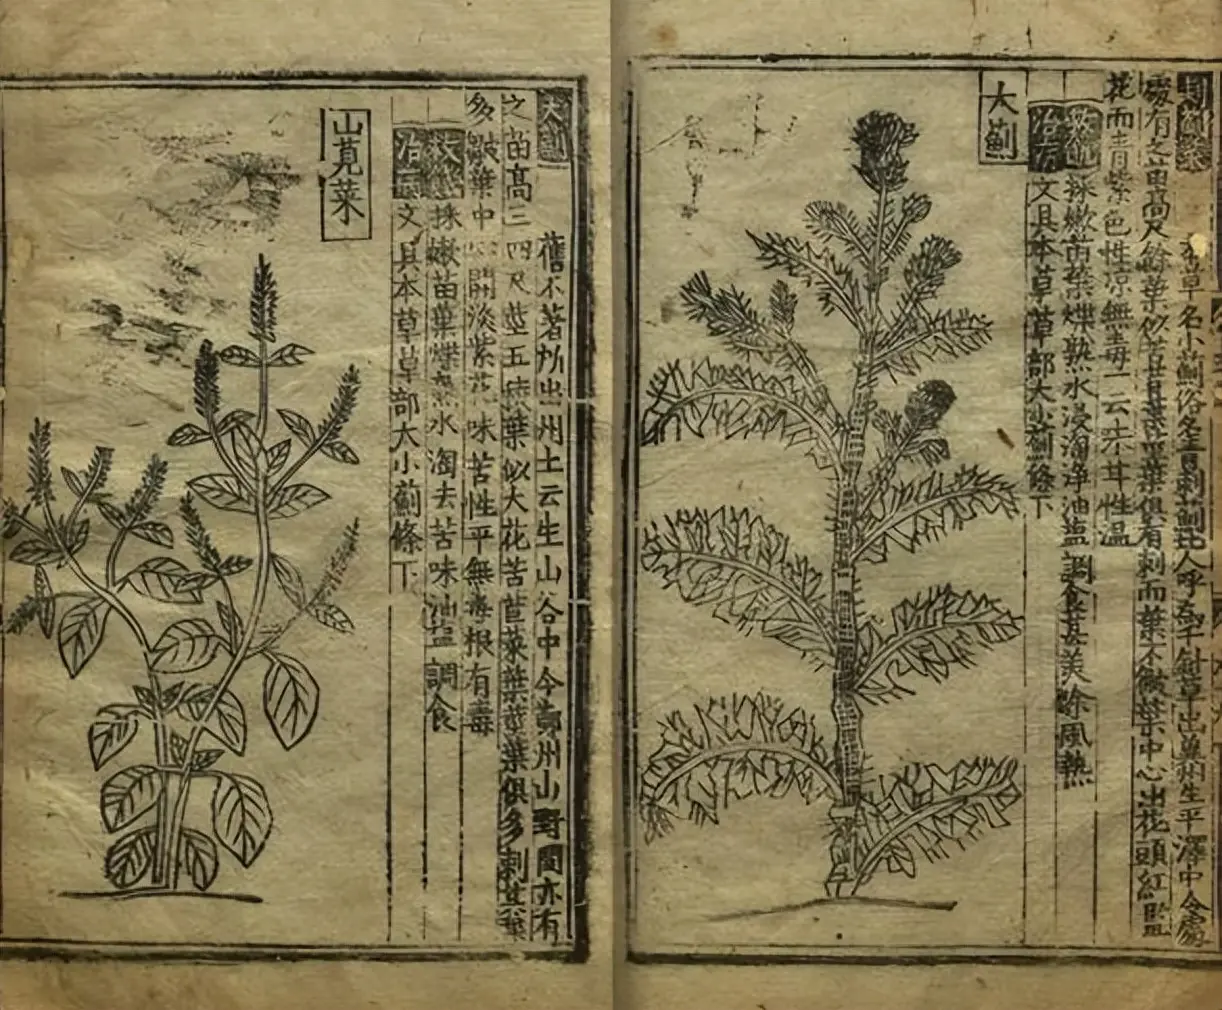 刺薊菜 本草名小薊俗名青刺薊北人呼為千針草出冀州生平澤中今處
處有之苗高尺餘葉似苦苣葉莖葉俱有刺而葉不皺葉中心出花頭紅藍
花而青紫色性涼無毒一云味甘性溫
救飢 採嫩苗葉煠熟水浸淘淨油塩調食甚美除風熱
治病 文具本草草部大小薊條下
大薊
大薊 舊不著所出州土云生山谷中今鄭州山野間亦有
之苗高三四尺莖五稜葉似大花苦苣菜葉莖葉俱多刺其葉
多皺葉中心開淡紫花味苦性平無毒根有毒
救飢 採嫩苗葉煠熟水淘去苦味油塩調食
治病 文具本草草部大小薊條下
山莧菜